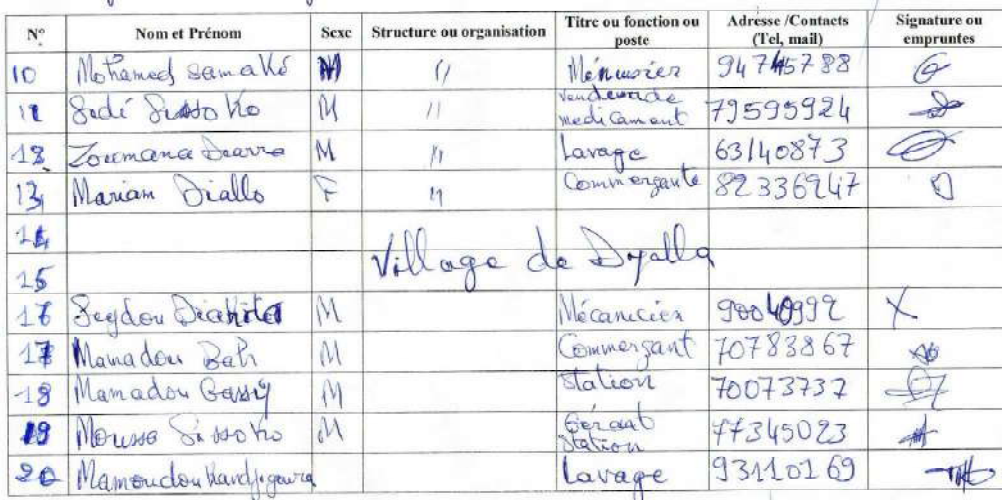 N° Nom et Prénom Sexe Structure ou organisation Titre ou fonction ou poste Adresse /Contacts (Tel, mail) Signature ou empruntes
10 Mohamed Samaké M " Ménuisier 94745788
11 Sadé Sissoko M " Vendeur de medicament 79595924
12 Zoumana Diarra M " Lavage 63140873
13 Mariam Diallo F " Commerçante 82336247
14
15 Village de Dyalla
16 Seydou Diakite M Mécanicien 90040992
17 Mamadou Bah M Commerçant 70783867
18 Mamadou Gassy M Station 70073737
19 Moussa Sissoko M Gérant Station 77345023
20 Mamoudou Kandjigoura Lavage 93110169